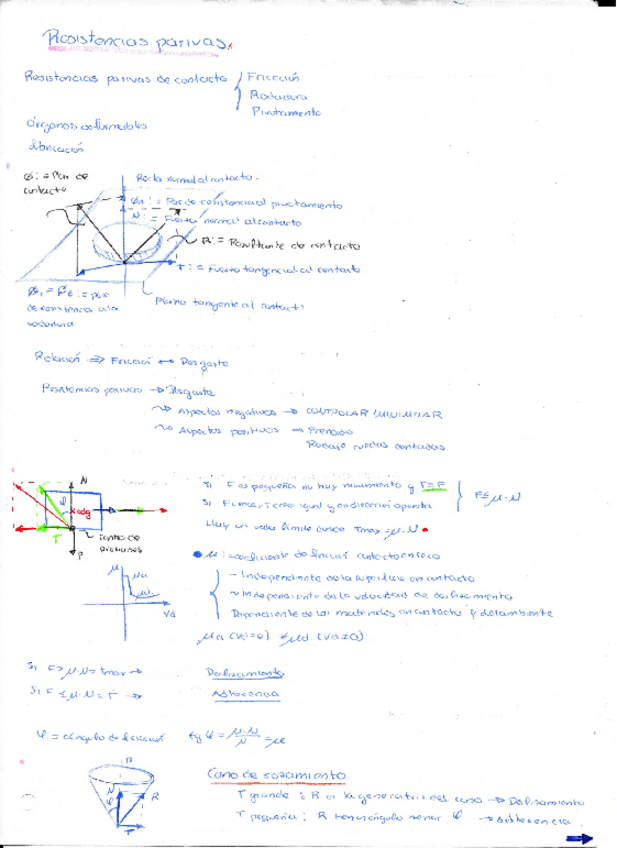 Resistencias pasivas.
Resistencias pasivas de contacto { Fricción
Rodadura
Pivotamiento
Órganos deformables
Lubricación
Par de contacto
Recta normal al contacto.
ϕn := Par de resistencia al pivotamiento
N := Fuerza normal al contacto
R := Resultante de contacto
T := Fuerza tangencial al contacto
:= par de resistencia a la rodadura
Plano tangente al contacto
Relación ⇒ Fricción ↔ Desgaste
Resistencias pasivas → Desgaste
Aspectos negativos → CONTROLAR/MINIMIZAR
Aspectos positivos → Frenado
Rodaje ruedas
N
φ
T
P
Centro de presiones
Si F es pequeña no hay movimiento y T=F
Si F crece, T crece igual y en dirección opuesta
Hay un valor límite Tmax = μ·N
F ≤ μ·N
μ: coeficiente de fricción
- Independiente de la superficie en contacto
~ Independiente de la velocidad de deslizamiento
Dependiente de los materiales en contacto y del ambiente
μ
μa
μd
Vd
μa (Vd=0) ≠ μd (Vd≠0)
Si F > μ·N = Tmax → Deslizamiento
Si F ≤ μ·N = T → Adherencia
φ = ángulo de fricción tg φ = μ·N/N = μ
Cono de rozamiento
n
N
R
φ
T
T grande: R en la generatriz del cono → Deslizamiento
T pequeña: R tiene ángulo menor φ → Adherencia